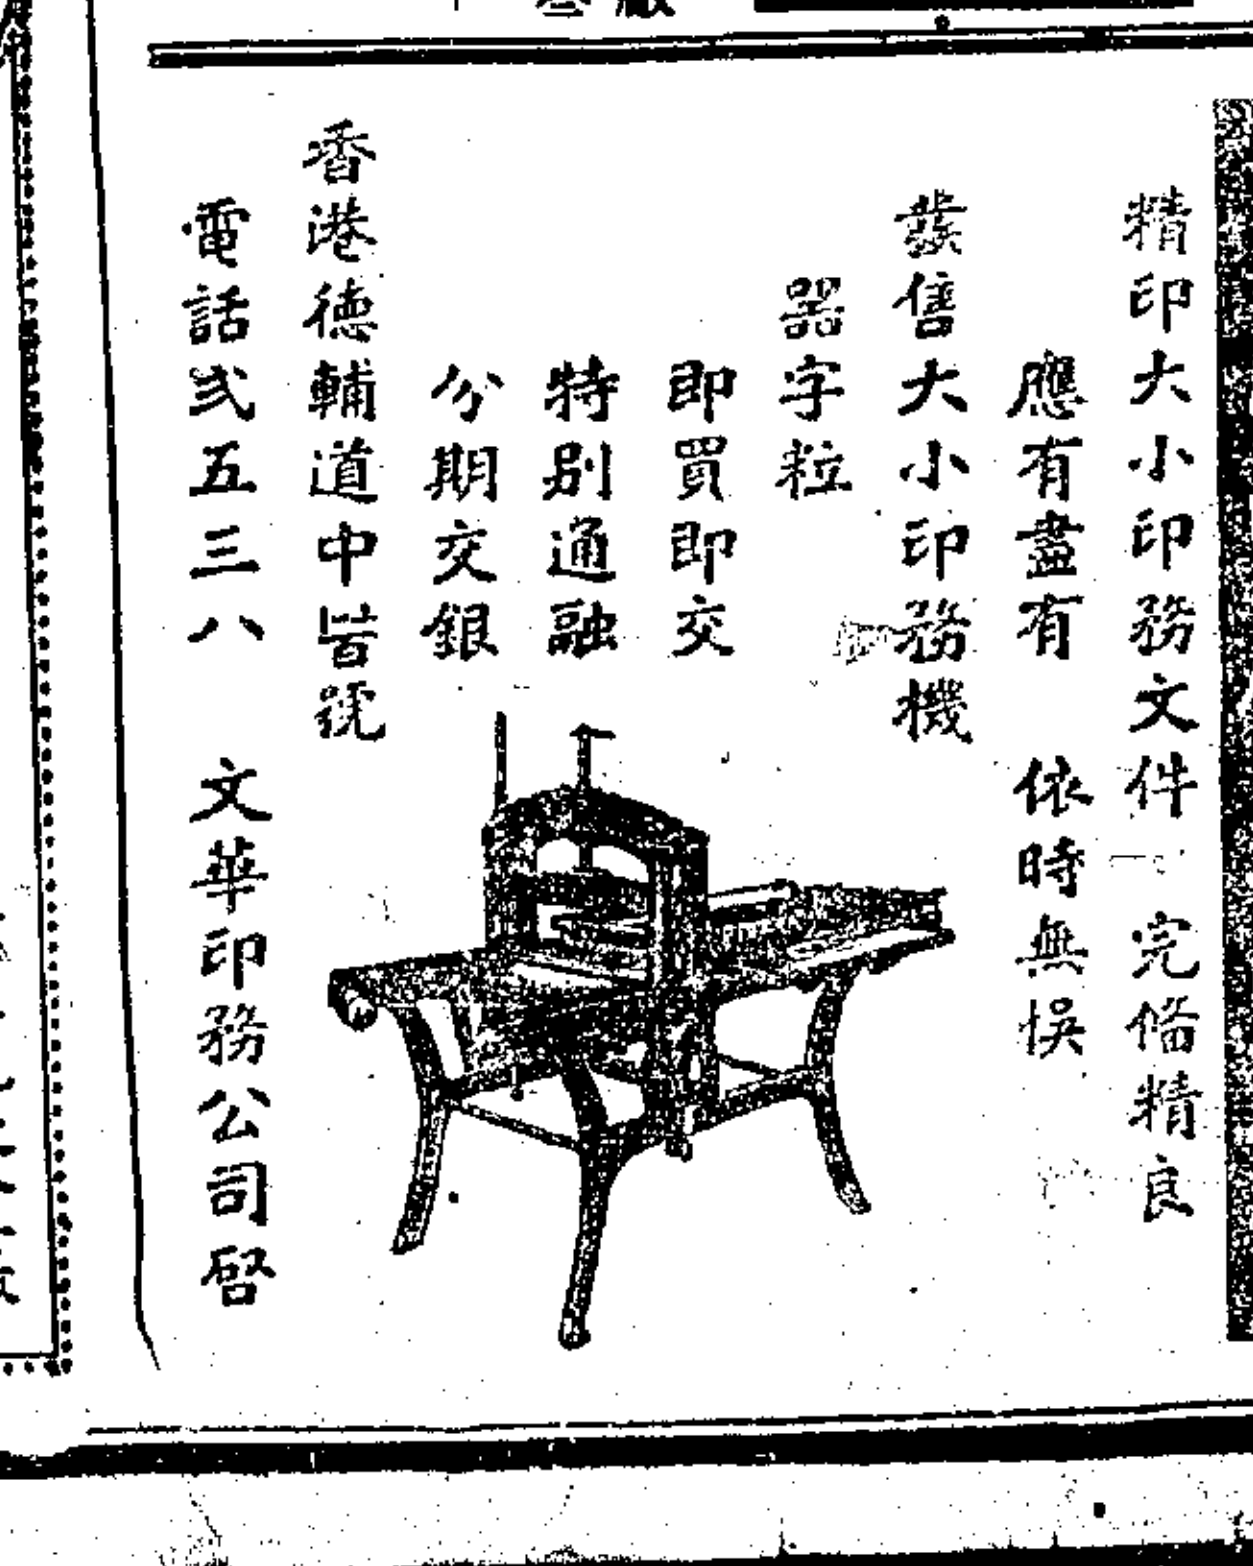 精印大小印務文件 完偹精良
應有盡有 依時無悞
發售大小印務機
器字粒
即買即交
特別通融
分期交銀
香港德輔道中皆號
電話弍五三八 文華印務公司啓